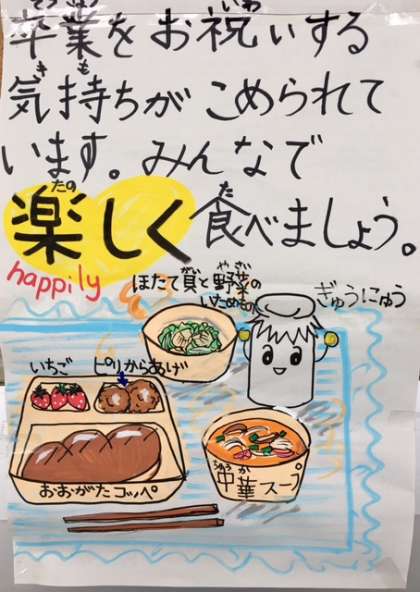 卒業をお祝いする
気持ちがこめられて
います。みんなで
楽しく食べましょう。
happily
ほたて貝と野菜の
いためもの
ぎゅうにゅう
いちご
ピリからあげ
おおがたコッペ
中華スープ